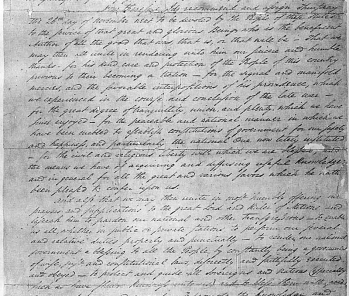 Now therefore I do recommend and assign Thursday
the 26th day of November next to be devoted by the People of these States
to the service of that great and glorious Being, who is the beneficent
author of all the good that was, that is, or that will be - That we
may then all unite in rendering unto him our sincere and humble
thanks - for his kind care and protection of the People of this country
previous to their becoming a Nation - for the signal and manifold
mercies, and the favorable interpositions of his providence, which
we experienced in the course and conclusion of the late war -
for the great degree of tranquillity, union, and plenty, which we have
since enjoyed - for the peaceable and rational manner in which we
have been enabled to establish constitutions of government for our safety
and happiness, and particularly the national One now lately instituted
- for the civil and religious liberty with which we are blessed, and
the means we have of acquiring and diffusing useful knowledge;
and in general for all the great and various favors which he hath
been pleased to confer upon us.
And also that we may then unite in most humbly offering our
prayers and supplications to the great Lord and Ruler of Nations, and
beseech him to pardon our national and other transgressions - to enable
us all, whether in public or private stations, to perform our several
and relative duties properly and punctually - to render our national
government a blessing to all the People, by constantly being a government
of wise, just and constitutional laws, discreetly and faithfully executed
and obeyed - to protect and guide all Sovereigns and Nations (especially
such as have shewn kindness unto us) and to bless them with good